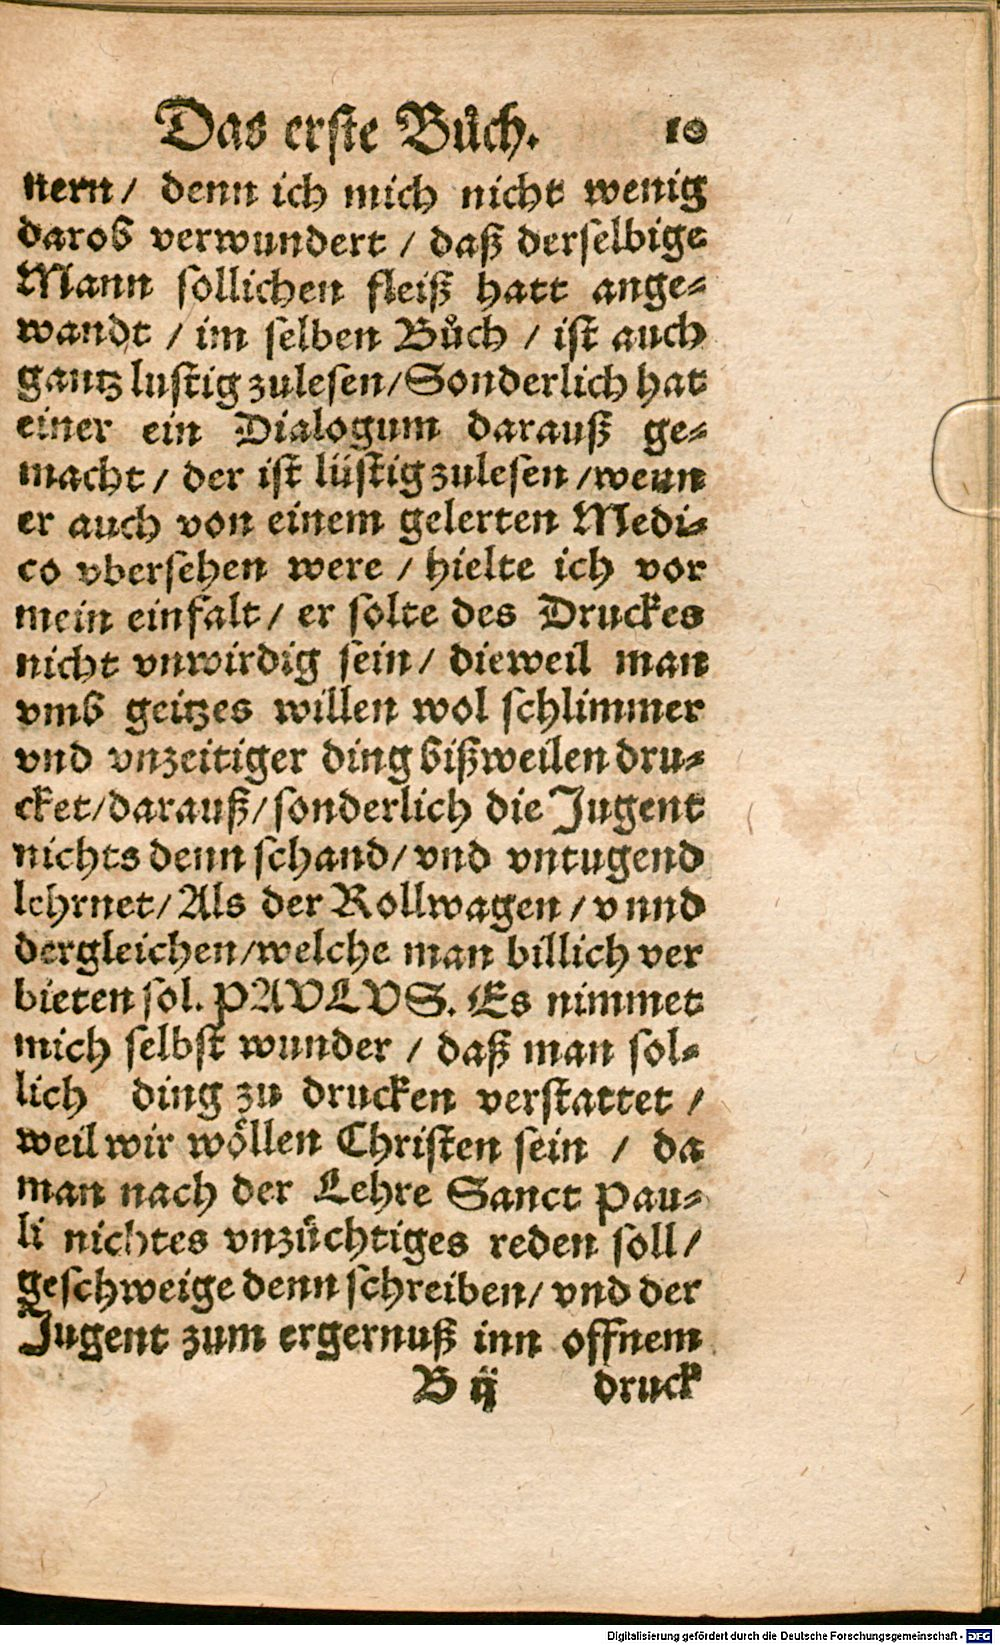 Das erste Bůch. 10
nern/ denn ich mich nicht wenig
darob verwundert / daß derselbige
Mann sollichen fleiß hatt ange-
wandt / im selben Bůch / ist auch
gantz lustig zulesen/Sonderlich hat
einer ein Dialogum darauß ge-
macht / der ist lüstig zulesen /wenn
er auch von einem gelerten Medi-
co vbersehen were / hielte ich vor
mein einfalt / er solte des Druckes
nicht vnwirdig sein/ dieweil man
vmb geitzes willen wol schlimmer
vnd vnzeitiger ding bißweilen dru-
cket/darauß/sonderlich die Jugent
nichts denn schand/vnd vntugend
lehrnet/Als der Rollwagen/vnnd
dergleichen/welche man billich ver
bieten sol. PAVLVS. Es nimmet
mich selbst wunder / daß man sol-
lich ding zu drucken verstattet /
weil wir wöllen Christen sein / da
man nach der Lehre Sanct Pau-
li nichtes vnzüchtiges reden soll/
geschweige denn schreiben/ vnd der
Jugent zum ergernuß inn offnem
B ij druck
Digitalisierung gefördert durch die Deutsche Forschungsgemeinschaft - DFG